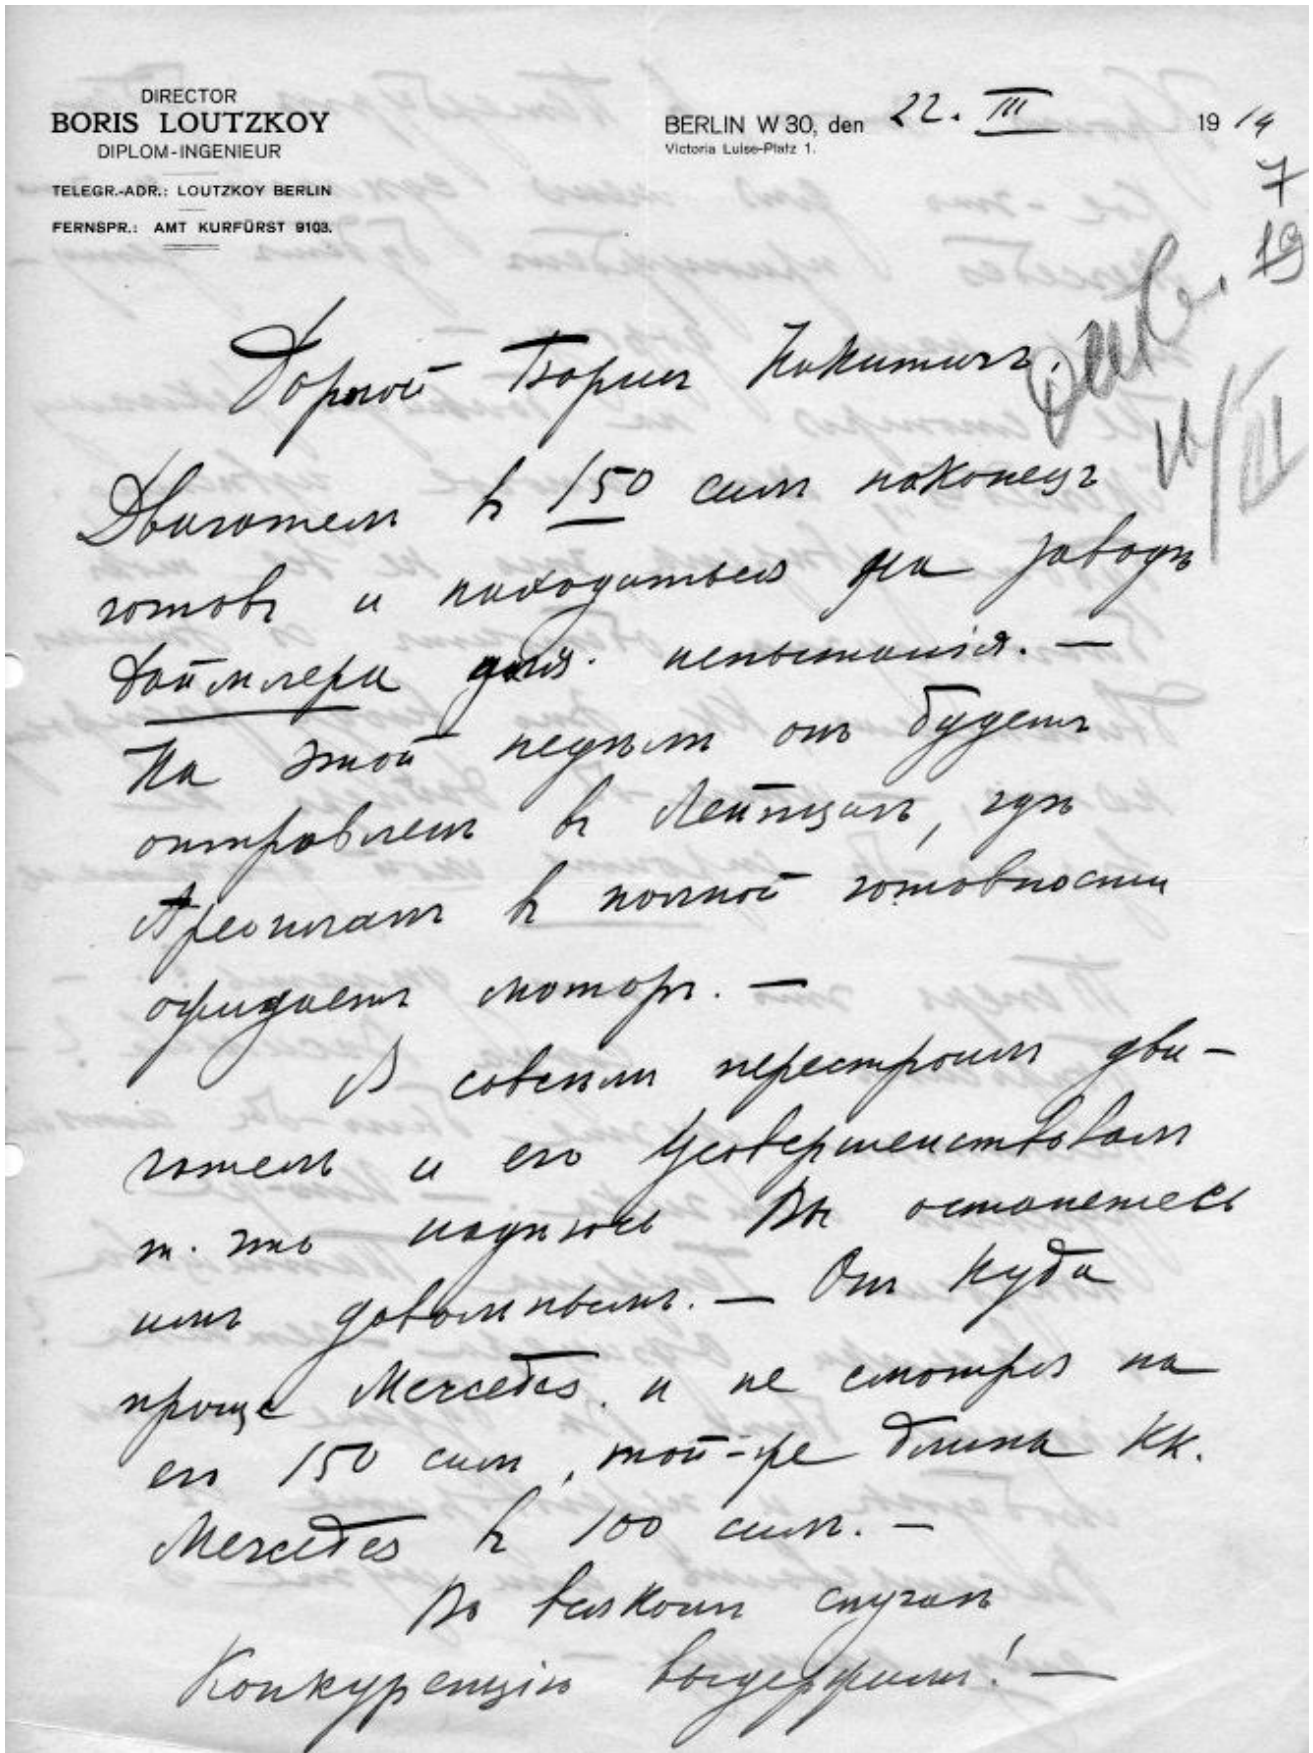 DIRECTOR
BORIS LOUTZKOY
DIPLOM-INGENIEUR
TELEGR.-ADR.: LOUTZKOY BERLIN
FERNSPR.: AMT KURFÜRST 9103.
BERLIN W 30, den 22. III 1914
Victoria Luise-Platz 1.
7
19
III
Дорогой Борисъ Никитичъ.
Двигатель въ 150 силъ наконецъ
готовъ и находиться на заводѣ
Даймлера для испытанія. —
На этой недѣлѣ онъ будетъ
отправленъ въ Лейпцигъ, гдѣ
Аеропланъ въ полной готовности
ожидаетъ моторъ. —
Я совсѣмъ перестроилъ дви-
гатель и его усовершенствовалъ
т. что надѣюсь Вы останетесь
имъ довольнымъ. — Онъ куда
проще Mercedes и не смотря на
его 150 силъ, той-же длины кк.
Mercedes въ 100 силъ. —
Во всякомъ случаѣ
Конкуренцію выдержимъ! —